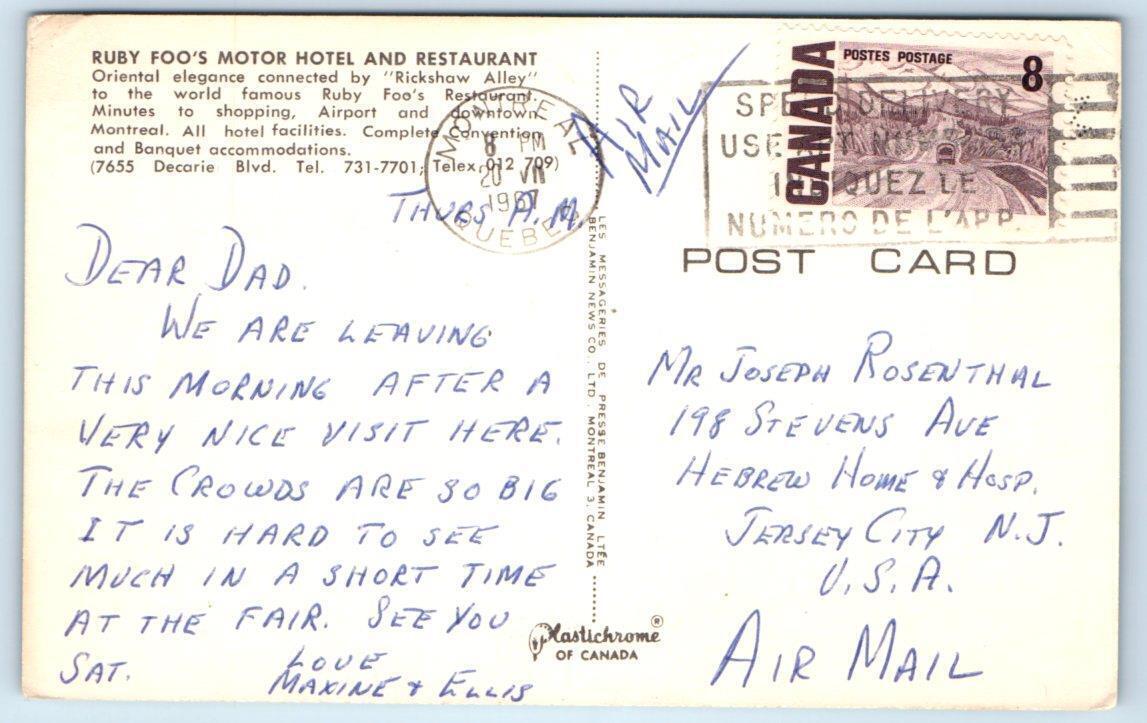 RUBY FOO'S MOTOR HOTEL AND RESTAURANT
Oriental elegance connected by "Rickshaw Alley"
to the world famous Ruby Foo's Restaurant.
Minutes to shopping, Airport and downtown
Montreal. All hotel facilities. Complete Convention
and Banquet accommodations.
(7655 Decarie Blvd. Tel. 731-7701; Telex 012 709)
MONTREAL
8 PM
20 VII
1967
QUEBEC
THURS A.M.
DEAR DAD.
WE ARE LEAVING
THIS MORNING AFTER A
VERY NICE VISIT HERE.
THE CROWDS ARE SO BIG
IT IS HARD TO SEE
MUCH IN A SHORT TIME
AT THE FAIR. SEE YOU
SAT.
LOVE
MAXINE & ELLIS
LES MESSAGERIES DE PRESSE BENJAMIN LTÉE
BENJAMIN NEWS CO., LTD. MONTREAL 3, CANADA
Plastichrome®
OF CANADA
AIR
MAIL
CANADA
POSTES POSTAGE
8
DELIVERY
USE
LE
NUMERO DE L'APP.
POST CARD
MR JOSEPH ROSENTHAL
198 STEVENS AVE
HEBREW HOME & HOSP.
JERSEY CITY N.J.
U.S.A.
AIR MAIL